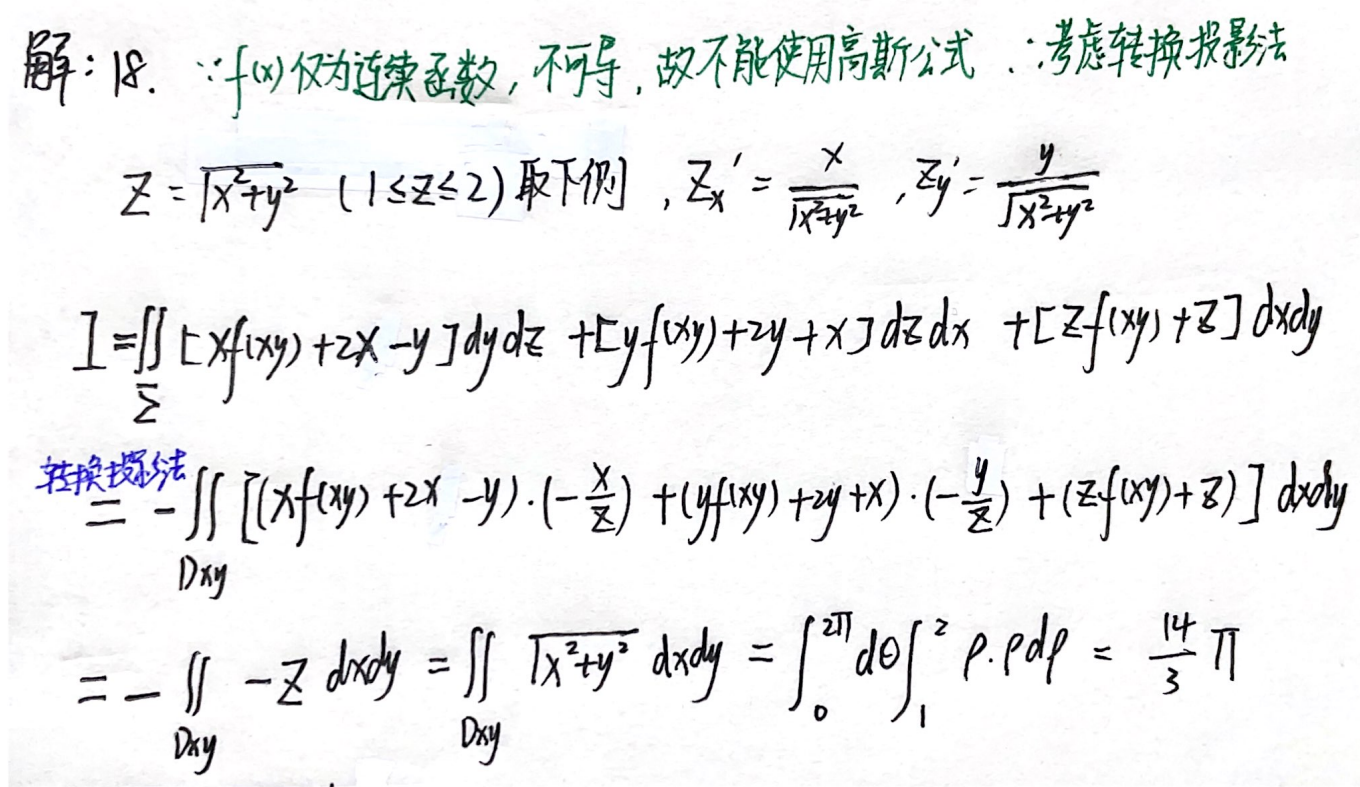 解：18. ∵f(x)仅为连续函数，不可导，故不能使用高斯公式 ∴考虑转换投影法
Z = √(x²+y²) (1≤z≤2) 取下侧，Zx' = x/√(x²+y²) ，Zy' = y/√(x²+y²)
I = ∬_Σ [xf(xy)+2x-y]dydz + [yf(xy)+2y+x]dzdx + [zf(xy)+z]dxdy
转换投影法
= -∬_Dxy [(xf(xy)+2x-y)·(-x/z) + (yf(xy)+2y+x)·(-y/z) + (zf(xy)+z)] dxdy
= -∬_Dxy -z dxdy = ∬_Dxy √(x²+y²) dxdy = ∫₀^2π dθ ∫₁² ρ·ρdρ = 14/3 π